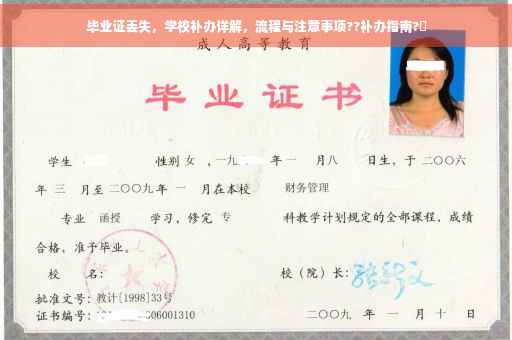 毕业证丢失，学校补办详解，流程与注意事项??补办指南?
成人高等教育
毕业证书
学生 性别 女 ，一九 年 一 月 八 日生，于 二〇〇六
年 三 月至 二〇〇九 年 一 月在本校 财务管理
专业 函授 学习，修完 专 科教学计划规定的全部课程，成绩
合格，准予毕业。
校 名： 校（院）长：
批准文号：教计[1998]33号
证书编号： 06001310 二〇〇九 年 一 月 十 日